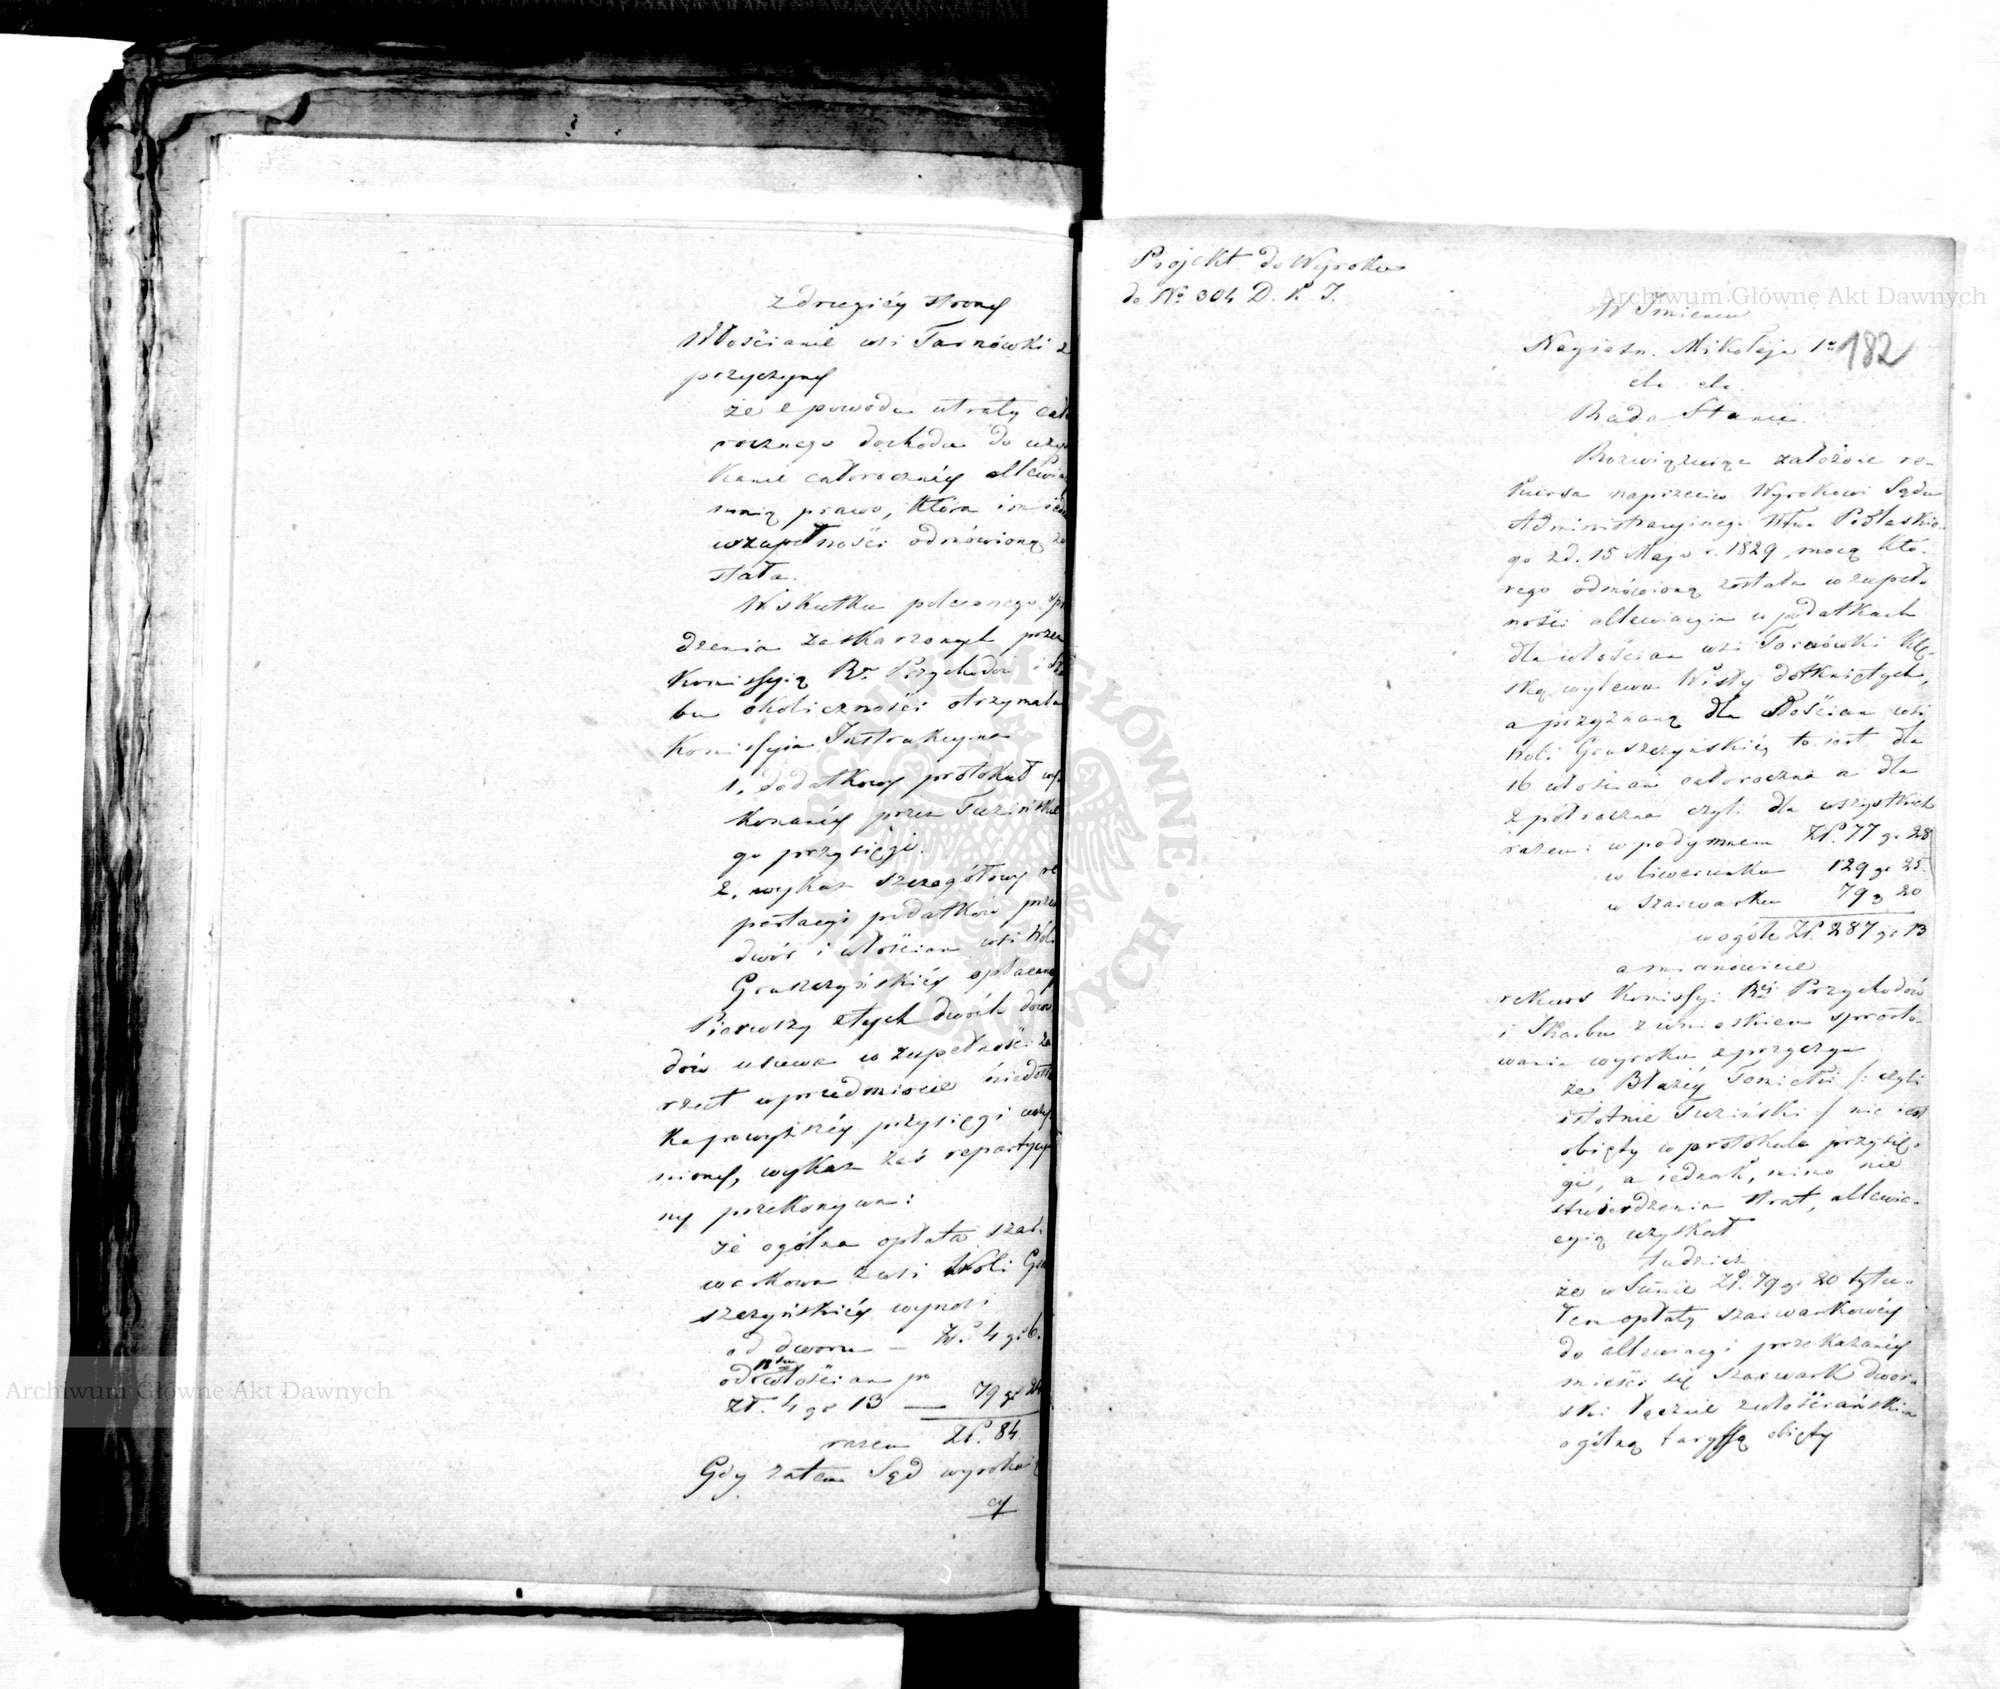 z drugiéy strony
Włościanie wsi Tarnówki z
przyczyny
że z powodu utraty cało
rocznego dochodu do uzys
kania całorocznéy allewia
maią prawo, która im
w zupełności odmówioną zo
stała.
W skutku poleconego spr
dzenia zaskarżonych przez
Kommissyią Rą. Przychodów i Skar
bu okoliczności otrzymała
Kommissyia Instrukcyina
1, dodatkowy protokuł wy
konanéy przez Tuzińskie
go przysięgi.
2, wykaz szczegółowy re
partacyi podatków przez
dwór i włościan wsi Woli
Gruszczyńskiéy opłacany
Pierwszy z tych dwóch dowo
dów usuwa w zupełności za
rzut w przedmiocie niedosta
przysięgi uczy
nioney, wykaz zaś repartycyi
ny przekonywa:
że ogólna opłata szar-
warkowa z wsi Woli Gru
szczyńskiéy wynosi
od dworu — Zł. 4 gr 6.
od 18tu włościan po
Zł. 4 gr 13 — 79 gr 24
razem Zł. 84
Gdy zatem Sąd wyrokuią
cy
Projekt do Wyroku
do No 304 D. K. I.
W Imieniu
Nayiaśn. Mikołaja Igo
182
etc. etc.
Rada Stanu
Rozwiązuiąc założone re-
kursa naprzeciw Wyrokowi Sądu
Administracyinego Wtwa Podlaskie-
go z d. 15 Maja r. 1829, mocą któ-
rego odmówioną została w zupeł-
ności allewiacyia w podatkach
dla włościan wsi Tarnówki klę-
ską wylewu Wisły dotkniętych,
a przyznaną dla włościan wsi
Woli Gruszczyńskiéy to iest dla
16 włościan całoroczna a dla
2 półroczna czyli dla wszystkich
razem: w podymnem Zł. 77 gr 28
w liwerunku 129 gr 25.
w szarwarku 79 gr 20
w ogóle Zł. 287 gr 13
a mianowicie
rekurs Kommissyi Réy Przychodów
i Skarbu z wnioskiem sprosto-
wania wyroku z przyczyn
że Błażéy Tomicki /: czyli
istotnie Tuziński :/ nie iest
obięty w protokule przysię-
gi, a iednak, mimo nie
stwierdzenia strat, allewia-
cyią uzyskał
tudzież
że w Summie Zł. 79 gr 20 tytu-
łem opłaty szarwarkowéy
do allewiacyi przekazanéy
mieści się szarwark dwor-
ski łącznie z włościańskim
ogólną taryffą obięty